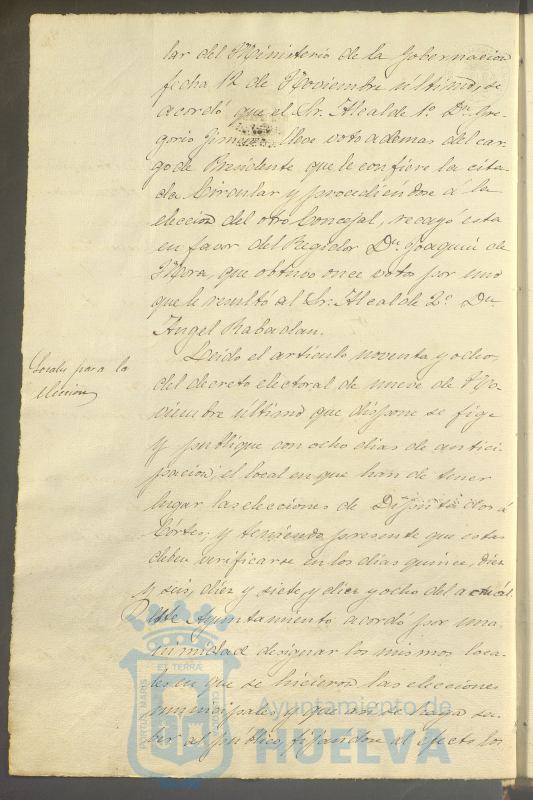 lar del Ministerio de la Gobernacion
fecha 12 de Noviembre último, se
acordó que el Sr. Alcalde 1º Dn. Gre-
gorio Jimenez lleve voto ademas del car-
go de Presidente que le confiere la cita-
da Circular y procediéndose á la
eleccion del otro Concejal, recayó esta
en favor del Regidor Dn. Joaquin de
Mora, que obtuvo once votos por uno
que le resultó al Sr. Alcalde 2º Dn.
Angel Rabadan.
Locales para la
eleccion
Leido el artículo noventa y ocho,
del decreto electoral de nueve de No-
viembre último que dispone se fije
y publique con ocho dias de antici-
pacion, el local en que han de tener
lugar las elecciones de Diputados á
Córtes; y teniendo presente que estas
deben verificarse en los dias quince, diez
y seis, diez y siete y diez y ocho del actual.
Este Ayuntamiento acordó por una-
nimidad designar los mismos loca-
les en que se hicieron las elecciones
municipales y que se haga sa-
ber al público, fijándose al efecto los
ET TERRÆ
PORTUS MARIS
CUSTODIA
Ayuntamiento de
HUELVA